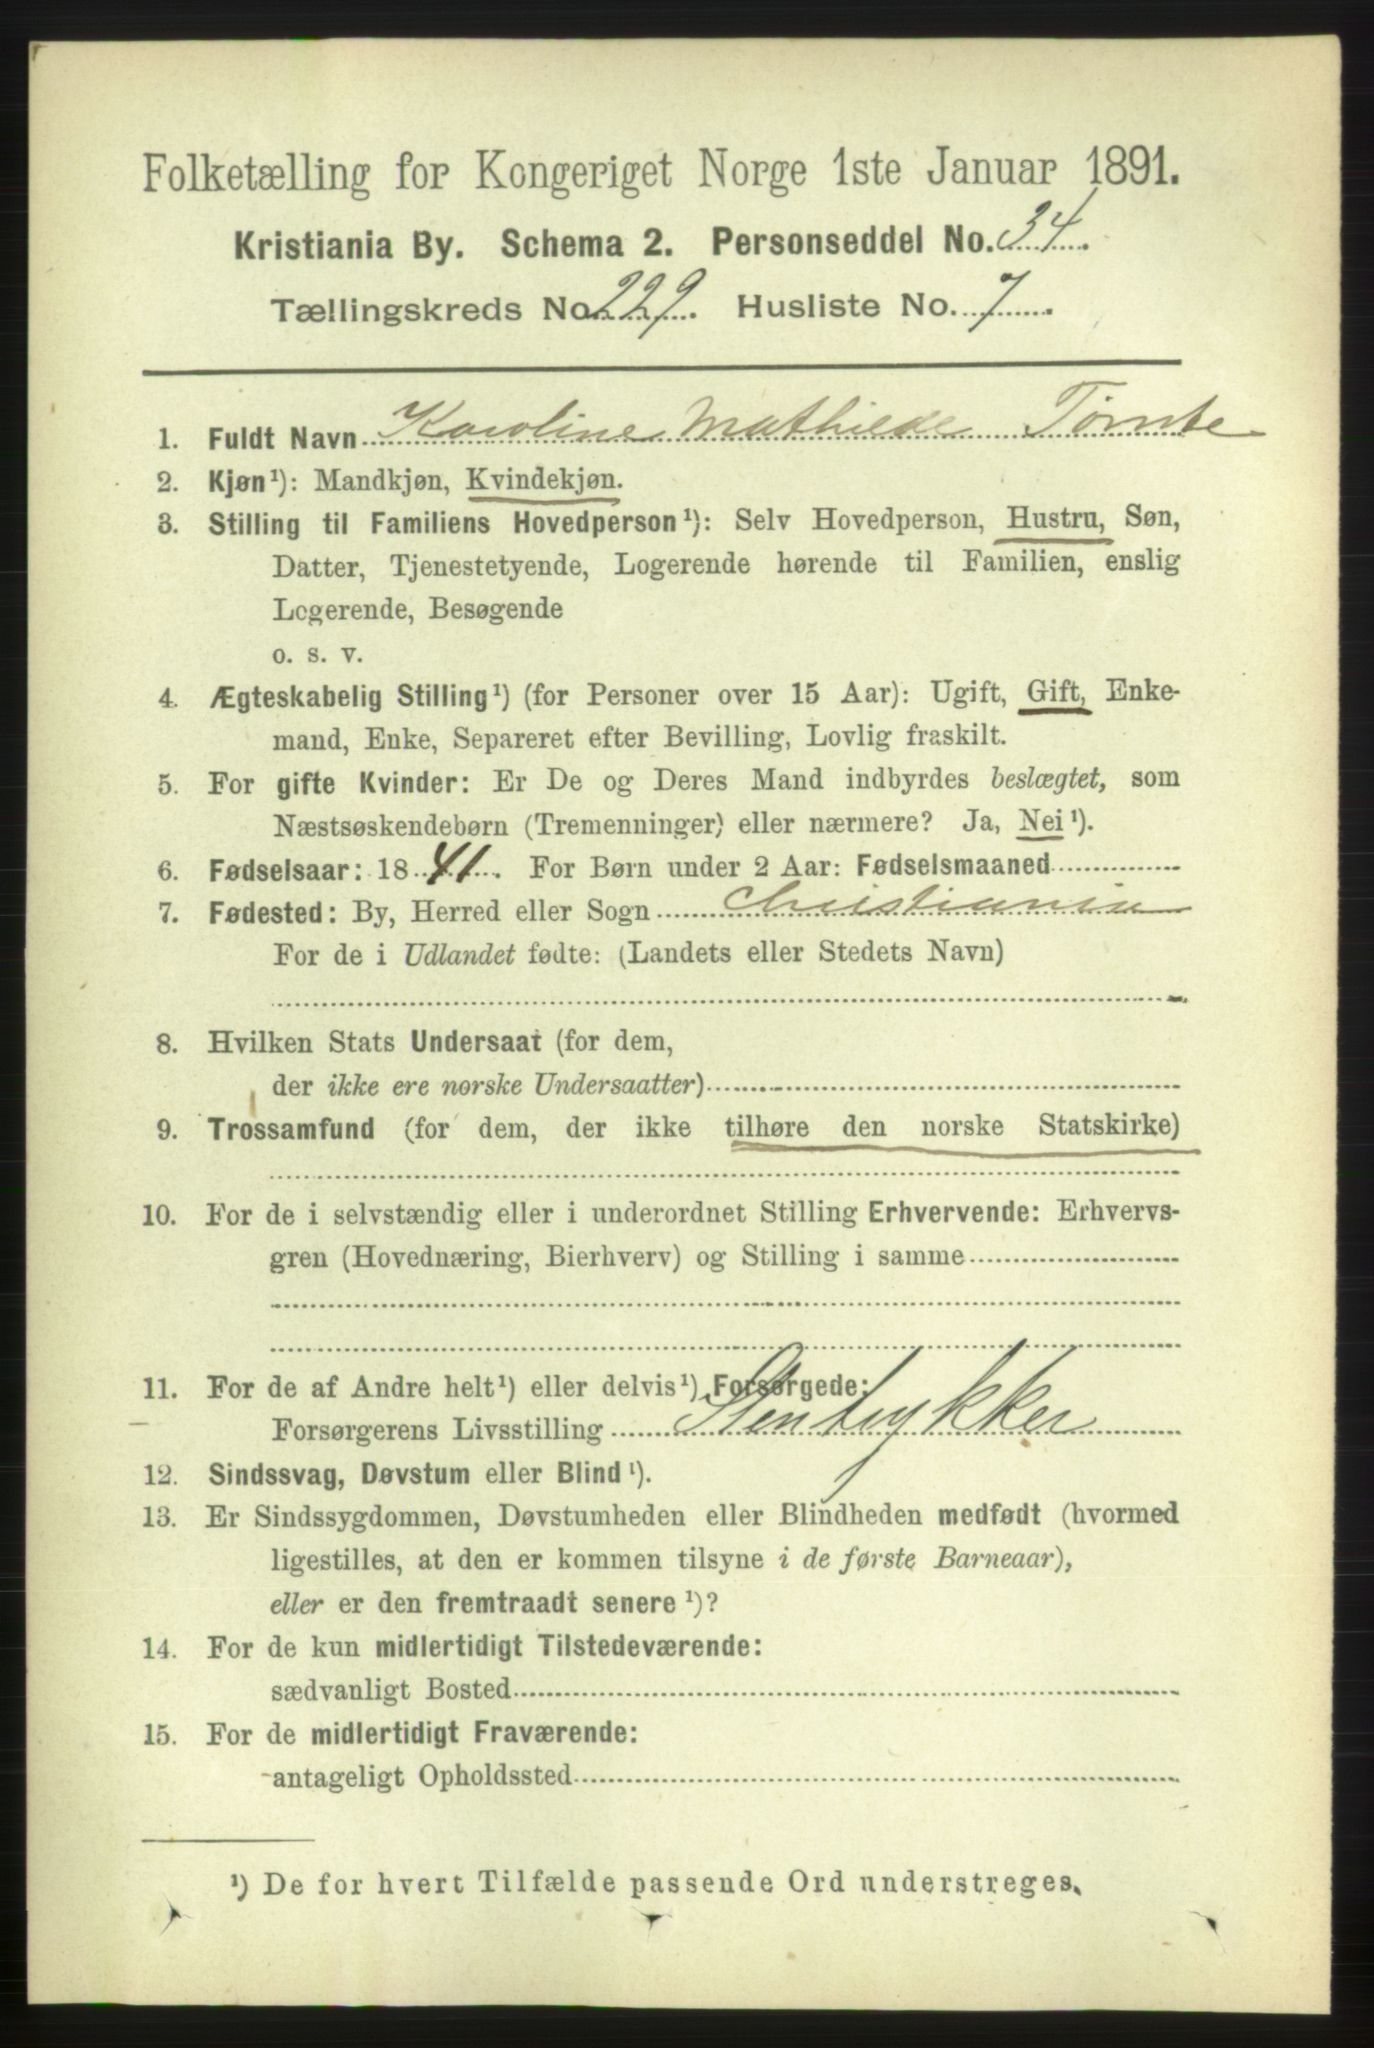 Folketælling for Kongeriget Norge 1ste Januar 1891.
Kristiania By. Schema 2. Personseddel No. 34.
Tællingskreds No. 229. Husliste No. 7.
1. Fuldt Navn Karoline Mathilde
2. Kjøn¹): Mandkjøn, Kvindekjøn.
3. Stilling til Familiens Hovedperson¹): Selv Hovedperson, Hustru, Søn,
Datter, Tjenestetyende, Logerende hørende til Familien, enslig
Logerende, Besøgende
o. s. v.
4. Ægteskabelig Stilling¹) (for Personer over 15 Aar): Ugift, Gift, Enke-
mand, Enke, Separeret efter Bevilling, Lovlig fraskilt.
5. For gifte Kvinder: Er De og Deres Mand indbyrdes beslægtet, som
Næstsøskendebørn (Tremenninger) eller nærmere? Ja, Nei¹).
6. Fødselsaar: 1841. For Børn under 2 Aar: Fødselsmaaned
7. Fødested: By, Herred eller Sogn Christiania
For de i Udlandet fødte: (Landets eller Stedets Navn)
8. Hvilken Stats Undersaat (for dem,
der ikke ere norske Undersaatter)
9. Trossamfund (for dem, der ikke tilhøre den norske Statskirke)
10. For de i selvstændig eller i underordnet Stilling Erhvervende: Erhvervs-
gren (Hovednæring, Bierhverv) og Stilling i samme
11. For de af Andre helt¹) eller delvis¹) Forsørgede:
Forsørgerens Livsstilling Stentrykker
12. Sindssvag, Døvstum eller Blind¹).
13. Er Sindssygdommen, Døvstumheden eller Blindheden medfødt (hvormed
ligestilles, at den er kommen tilsyne i de første Barneaar),
eller er den fremtraadt senere¹)?
14. For de kun midlertidigt Tilstedeværende:
sædvanligt Bosted
15. For de midlertidigt Fraværende:
antageligt Opholdssted
¹) De for hvert Tilfælde passende Ord understreges.